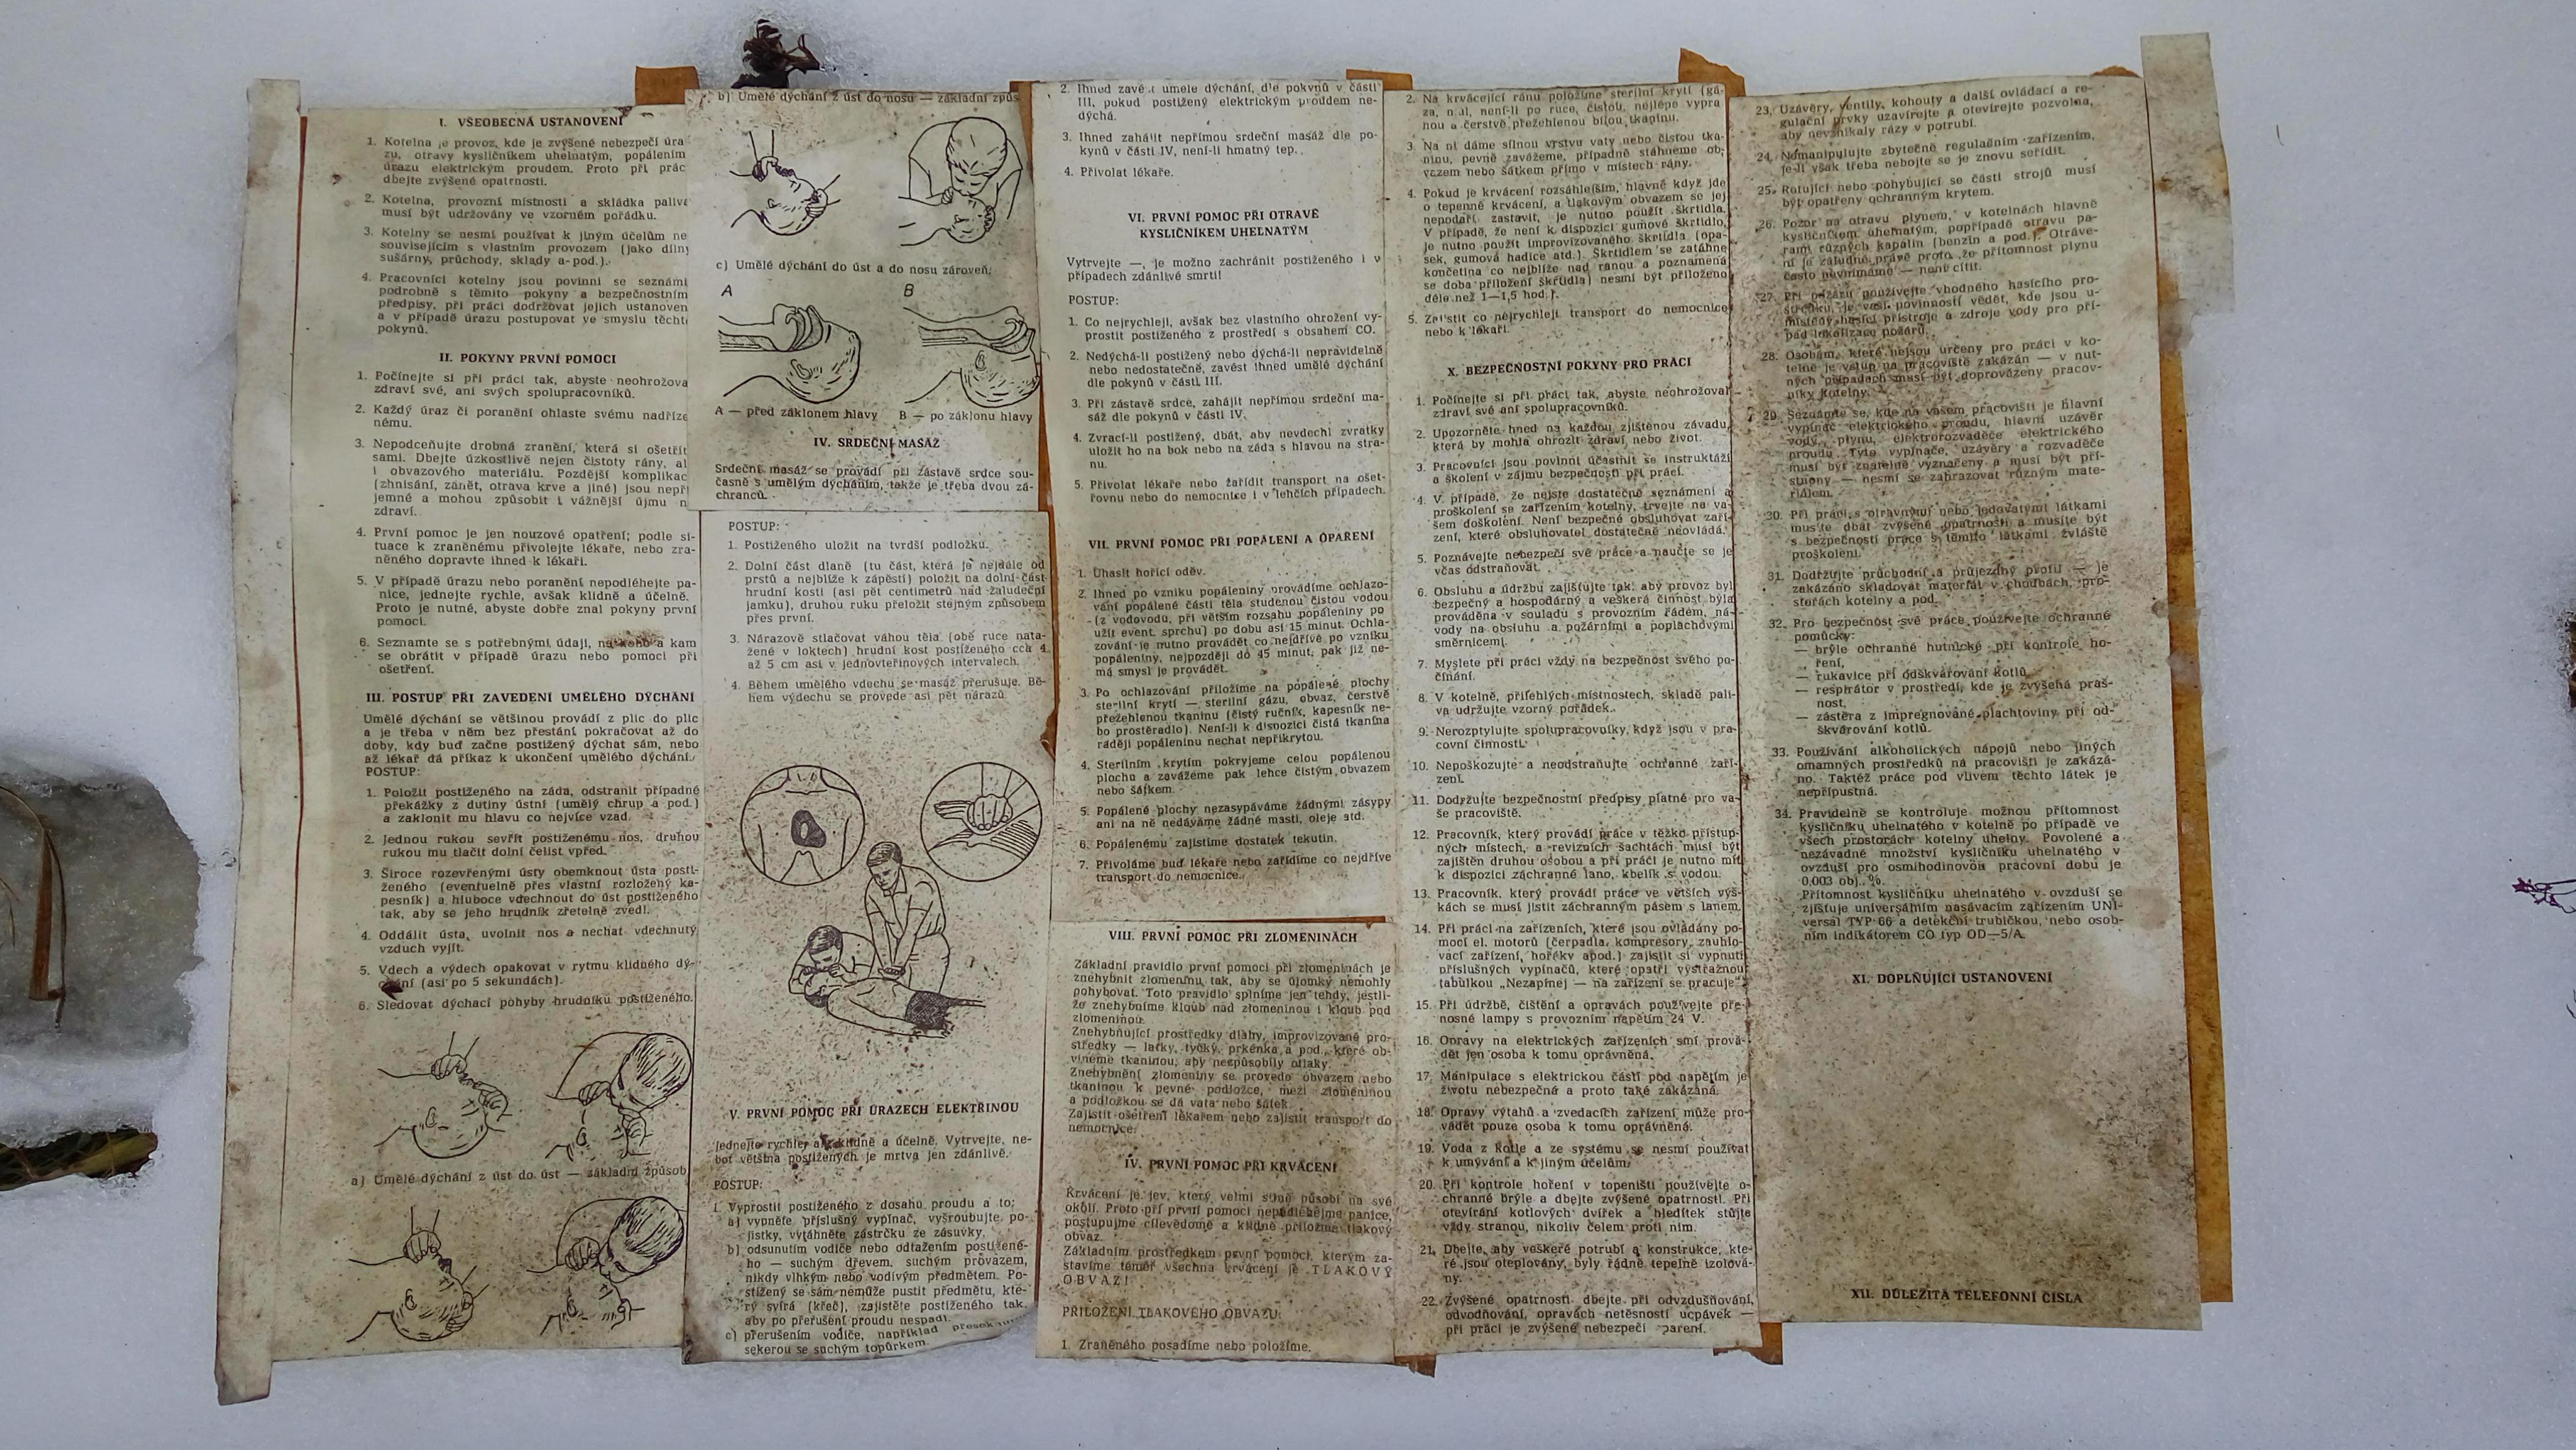 I. VŠEOBECNÁ USTANOVENÍ
1. Kotelna je provoz, kde je zvýšené nebezpečí úra
zu, otravy kysličníkem uhelnatým, popálením
úrazu elektrickým proudem. Proto při prác
dbejte zvýšené opatrnosti.
2. Kotelna, provozní místnosti a skládka paliva
musí být udržovány ve vzorném pořádku.
3. Kotelny se nesmí používat k jiným účelům ne
souvisejícím s vlastním provozem (jako dílny
sušárny, průchody, sklady a pod.).
4. Pracovníci kotelny jsou povinni se seznámi
podrobně s těmito pokyny a bezpečnostním
předpisy, při práci dodržovat jejich ustanoven
a v případě úrazu postupovat ve smyslu těcht
pokynů.
II. POKYNY PRVNÍ POMOCI
1. Počínejte si při práci tak, abyste neohrožova
zdraví své, ani svých spolupracovníků.
2. Každý úraz či poranění ohlaste svému nadříze
nému.
3. Nepodceňujte drobná zranění, která si ošetřít
sami. Dbejte úzkostlivě nejen čistoty rány, al
i obvazového materiálu. Pozdější komplikac
(zhnisání, zánět, otrava krve a jiné) jsou nepř
jemné a mohou způsobit i vážnější újmu n
zdraví.
4. První pomoc je jen nouzové opatření; podle si-
tuace k zraněnému přivolejte lékaře, nebo zra-
něného dopravte ihned k lékaři.
5. V případě úrazu nebo poranění nepodléhejte pa-
nice, jednejte rychle, avšak klidně a účelně.
Proto je nutné, abyste dobře znal pokyny první
pomoci.
6. Seznamte se s potřebnými údaji, na koho a kam
se obrátit v případě úrazu nebo pomoci při
ošetření.
III. POSTUP PŘI ZAVEDENÍ UMĚLÉHO DÝCHÁNÍ
Umělé dýchání se většinou provádí z plic do plic
a je třeba v něm bez přestání pokračovat až do
doby, kdy buď začne postižený dýchat sám, nebo
až lékař dá příkaz k ukončení umělého dýchání.
POSTUP:
1. Položit postiženého na záda, odstranit případné
překážky z dutiny ústní (umělý chrup a pod.)
a zaklonit mu hlavu co nejvíce vzad.
2. Jednou rukou sevřít postiženému nos, druhou
rukou mu tlačit dolní čelist vpřed.
3. Široce rozevřenými ústy obemknout ústa posti-
ženého (eventuelně přes vlastní rozložený ka-
pesník) a hluboce vdechnout do úst postiženého
tak, aby se jeho hrudník zřetelně zvedl.
4. Oddálit ústa, uvolnit nos a nechat vdechnutý
vzduch vyjít.
5. Vdech a výdech opakovat v rytmu klidného dý-
chání (asi po 5 sekundách).
6. Sledovat dýchací pohyby hrudníku postiženého.
a) Umělé dýchání z úst do úst — základní způsob
b) Umělé dýchání z úst do nosu — základní způs
c) Umělé dýchání do úst a do nosu zároveň:
A B
A — před záklonem hlavy B — po záklonu hlavy
IV. SRDEČNÍ MASÁŽ
Srdeční masáž se provádí při zástavě srdce sou-
časně s umělým dýcháním, takže je třeba dvou zá-
chranců.
POSTUP:
1. Postiženého uložit na tvrdší podložku.
2. Dolní část dlaně (tu část, která je nejdále od
prstů a nejblíže k zápěstí) položit na dolní část
hrudní kosti (asi pět centimetrů nad žaludeční
jamku), druhou ruku přeložit stejným způsobem
přes první.
3. Nárazově stlačovat váhou těla (obě ruce nata-
žené v loktech) hrudní kost postiženého cca 4
až 5 cm asi v jednovteřinových intervalech.
4. Během umělého vdechu se masáž přerušuje. Bě-
hem výdechu se provede asi pět nárazů.
V. PRVNÍ POMOC PŘI ÚRAZECH ELEKTŘINOU
Jednejte rychle, a klidně a účelně. Vytrvejte, ne-
boť většina postižených je mrtva jen zdánlivě.
POSTUP:
1. Vyprostit postiženého z dosahu proudu a to:
a) vypněte příslušný vypínač, vyšroubujte po-
jistky, vytáhněte zástrčku ze zásuvky,
b) odsunutím vodiče nebo odtažením postižené-
ho — suchým dřevem, suchým provazem,
nikdy vlhkým nebo vodivým předmětem. Po-
stižený se sám nemůže pustit předmětu, kte-
rý svírá (křeč), zajistěte postiženého tak,
aby po přerušení proudu nespadl.
c) přerušením vodiče, například
sekerou se suchým topůrkem.
2. Ihned zavést umělé dýchání, dle pokynů v části
III, pokud postižený elektrickým proudem ne-
dýchá.
3. Ihned zahájit nepřímou srdeční masáž dle po-
kynů v části IV, není-li hmatný tep.
4. Přivolat lékaře.
VI. PRVNÍ POMOC PŘI OTRAVĚ
KYSLIČNÍKEM UHELNATÝM
Vytrvejte —, je možno zachránit postiženého i v
případech zdánlivé smrti!
POSTUP:
1. Co nejrychleji, avšak bez vlastního ohrožení vy-
prostit postiženého z prostředí s obsahem CO.
2. Nedýchá-li postižený nebo dýchá-li nepravidelně
nebo nedostatečně, zavést ihned umělé dýchání
dle pokynů v části III.
3. Při zástavě srdce, zahájit nepřímou srdeční ma-
sáž dle pokynů v části IV.
4. Zvrací-li postižený, dbát, aby nevdechl zvratky
uložit ho na bok nebo na záda s hlavou na stra-
nu.
5. Přivolat lékaře nebo zařídit transport na ošet-
řovnu nebo do nemocnice i v lehčích případech.
VII. PRVNÍ POMOC PŘI POPÁLENÍ A OPAŘENÍ
1. Uhasit hořící oděv.
2. Ihned po vzniku popáleniny provádíme ochlazo-
vání popálené části těla studenou čistou vodou
(z vodovodu, při větším rozsahu popáleniny po
užít event. sprchu) po dobu asi 15 minut. Ochla-
zování je nutno provádět co nejdříve po vzniku
popáleniny, nejpozději do 45 minut, pak již ne-
má smysl je provádět.
3. Po ochlazování přiložíme na popálené plochy
sterilní krytí — sterilní gázu, obvaz, čerstvě
přežehlenou tkaninu (čistý ručník, kapesník ne-
bo prostěradlo). Není-li k dispozici čistá tkanina
raději popáleninu nechat nepřikrytou.
4. Sterilním krytím pokryjeme celou popálenou
plochu a zavážeme pak lehce čistým obvazem
nebo šátkem.
5. Popálené plochy nezasypáváme žádnými zásypy
ani na ně nedáváme žádné masti, oleje atd.
6. Popálenému zajistíme dostatek tekutin.
7. Přivoláme buď lékaře nebo zařídíme co nejdříve
transport do nemocnice.
VIII. PRVNÍ POMOC PŘI ZLOMENINÁCH
Základní pravidlo první pomoci při zlomeninách je
znehybnit zlomeninu tak, aby se úlomky nemohly
pohybovat. Toto pravidlo splníme jen tehdy, jestli-
že znehybníme kloub nad zlomeninou i kloub pod
zlomeninou.
Znehybňující prostředky dlahy, improvizované pro-
středky — laťky, tyčky, prkénka a pod., které ob-
vineme tkaninou, aby nezpůsobily otlaky.
Znehybnění zlomeniny se provede obvazem nebo
tkaninou k pevné podložce, mezi zlomeninou
a podložkou se dá vata nebo šátek.
Zajistit ošetření lékařem nebo zajistit transport do
nemocnice.
IV. PRVNÍ POMOC PŘI KRVÁCENÍ
Krvácení je jev, který velmi silně působí na své
okolí. Proto při první pomoci nepodléhejme panice,
postupujme cílevědomě a klidně přiložme tlakový
obvaz.
Základním prostředkem první pomoci, kterým za-
stavíme téměř všechna krvácení je TLAKOVÝ
OBVAZ!
PŘILOŽENÍ TLAKOVÉHO OBVAZU:
1. Zraněného posadíme nebo položíme.
2. Na krvácející ránu položíme sterilní krytí (gá-
za, n. al, není-li po ruce, čistou, nejlépe vypra
nou a čerstvě přežehlenou bílou tkaninu.
3. Na ni dáme silnou vrstvu vaty nebo čistou tka-
ninu, pevně zavážeme, případně stáhneme ob-
vazem nebo šátkem přímo v místech rány.
4. Pokud je krvácení rozsáhlejším, hlavně když jde
o tepenné krvácení, a tlakovým obvazem se jej
nepodaří zastavit, je nutno použít škrtidla.
V případě, že není k dispozici gumové škrtidlo,
je nutno použít improvizovaného škrtidla (opa-
sek, gumová hadice atd.). Škrtidlem se zatáhne
končetina co nejblíže nad ranou a poznamená
se doba přiložení škrtidla) nesmí být přiloženo
déle než 1—1,5 hod.).
5. Zajistit co nejrychleji transport do nemocnice
nebo k lékaři.
X. BEZPEČNOSTNÍ POKYNY PRO PRÁCI
1. Počínejte si při práci tak, abyste neohrožoval
zdraví své ani spolupracovníků.
2. Upozorněte hned na každou zjištěnou závadu,
která by mohla ohrozit zdraví nebo život.
3. Pracovníci jsou povinni účastnit se instruktáží
a školení v zájmu bezpečnosti při práci.
4. V případě, že nejste dostatečně seznámeni a
proškolení se zařízením kotelny, trvejte na va-
šem doškolení. Není bezpečné obsluhovat zaří-
zení, které obsluhovatel dostatečně neovládá.
5. Poznávejte nebezpečí své práce a naučte se je
včas odstraňovat.
6. Obsluhu a údržbu zajišťujte tak, aby provoz byl
bezpečný a hospodárný a veškerá činnost byla
prováděna v souladu s provozním řádem, ná-
vody na obsluhu a požárními a poplachovými
směrnicemi.
7. Myslete při práci vždy na bezpečnost svého po-
čínání.
8. V kotelně, přilehlých místnostech, skladě pali-
va udržujte vzorný pořádek.
9. Nerozptylujte spolupracovníky, když jsou v pra-
covní činnosti.
10. Nepoškozujte a neodstraňujte ochranné zaří-
zení.
11. Dodržujte bezpečnostní předpisy platné pro va-
še pracoviště.
12. Pracovník, který provádí práce v těžko přístup-
ných místech, a revizních šachtách musí být
zajištěn druhou osobou a při práci je nutno mít
k dispozici záchranné lano, kbelík s vodou.
13. Pracovník, který provádí práce ve větších výš-
kách se musí jistit záchranným pásem s lanem.
14. Při práci na zařízeních, které jsou ovládány po-
mocí el. motorů (čerpadla, kompresory, zauhlo-
vací zařízení, hořáky apod.) zajistit si vypnutí
příslušných vypínačů, které opatří výstražnou
tabulkou „Nezapínej — na zařízení se pracuje"
15. Při údržbě, čištění a opravách používejte pře-
nosné lampy s provozním napětím 24 V.
16. Opravy na elektrických zařízeních smí prová-
dět jen osoba k tomu oprávněná.
17. Manipulace s elektrickou částí pod napětím je
životu nebezpečná a proto také zakázaná.
18. Opravy výtahů a zvedacích zařízení může pro-
vádět pouze osoba k tomu oprávněná.
19. Voda z kotle a ze systému se nesmí používat
k umývání a k jiným účelům.
20. Při kontrole hoření v topeništi používejte o-
chranné brýle a dbejte zvýšené opatrnosti. Při
otevírání kotlových dvířek a hledítek stůjte
vždy stranou, nikoliv čelem proti nim.
21. Dbejte, aby veškeré potrubí a konstrukce, kte-
ré jsou oteplovány, byly řádně tepelně izolová-
ny.
22. Zvýšené opatrnosti dbejte při odvzdušňování,
odvodňování, opravách netěsností ucpávek —
při práci je zvýšené nebezpečí opaření.
23. Uzávěry, ventily, kohouty a další ovládací a re-
gulační prvky uzavírejte a otevírejte pozvolna,
aby nevznikaly rázy v potrubí.
24. Nemanipulujte zbytečně regulačním zařízením,
je-li však třeba nebojte se je znovu seřídit.
25. Rotující nebo pohybující se části strojů musí
být opatřeny ochranným krytem.
26. Pozor na otravu plynem, v kotelnách hlavně
kysličníkem uhelnatým, popřípadě otravu pa-
rami různých kapalin (benzin a pod.). Otráve-
ní je záludné právě proto, že přítomnost plynu
často nevnímáme — není cítit.
27. Při požáru používejte vhodného hasícího pro-
středku. Je vaší povinností vědět, kde jsou u-
místěny hasící přístroje a zdroje vody pro pří-
pad lokalizace požárů.
28. Osobám, které nejsou určeny pro práci v ko-
telně je vstup na pracoviště zakázán — v nut-
ných případech musí být doprovázeny pracov-
níky kotelny.
29. Seznamte se, kde na vašem pracovišti je hlavní
vypínač elektrického proudu, hlavní uzávěr
vody, plynu, elektrorozvaděče elektrického
proudu. Tyto vypínače, uzávěry a rozvaděče
musí být znatelně vyznačeny a musí být pří-
stupny — nesmí se zahrazovat různým mate-
riálem.
30. Při práci s otravnými nebo jedovatými látkami
musíte dbát zvýšené opatrnosti a musíte být
s bezpečností práce s těmito látkami zvláště
proškoleni.
31. Dodržujte průchodní a průjezdný profil — je
zakázáno skladovat materiál v chodbách, pro-
storách kotelny a pod.
32. Pro bezpečnost své práce používejte ochranné
pomůcky:
— brýle ochranné hutnické při kontrole ho-
ření,
— rukavice při odškvárování kotlů,
— respirátor v prostředí, kde je zvýšená praš-
nost,
— zástěra z impregnované plachtoviny při od-
škvárování kotlů.
33. Používání alkoholických nápojů nebo jiných
omamných prostředků na pracovišti je zakázá-
no. Taktéž práce pod vlivem těchto látek je
nepřípustná.
34. Pravidelně se kontroluje možnou přítomnost
kysličníku uhelnatého v kotelně po případě ve
všech prostorách kotelny uhelny. Povolené a
nezávadné množství kysličníku uhelnatého v
ovzduší pro osmihodinovou pracovní dobu je
0,003 obj. %.
Přítomnost kysličníku uhelnatého v ovzduší se
zjišťuje universálním nasávacím zařízením UNI-
versal TYP 66 a detekční trubičkou, nebo osob-
ním indikátorem CO typ OD—5/A.
XI. DOPLŇUJÍCÍ USTANOVENÍ
XII. DŮLEŽITÁ TELEFONNÍ ČÍSLA